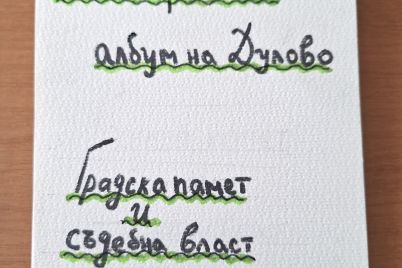 албум на Дулово
Градска памет
и
съдебна власт